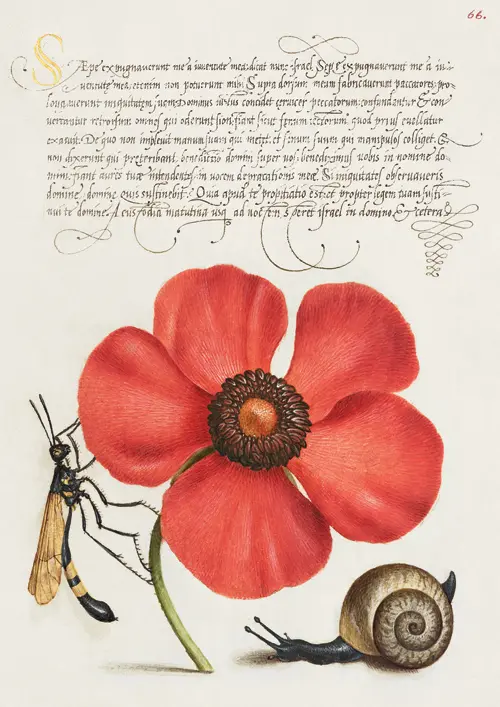 66.
Sæpe expugnaverunt me a iuventute mea: dicat nunc Israel, Sepe expugnaverunt me a iu=
ventute mea, etenim non potuerunt mihi Supra dorsum meum fabricaverunt peccatores, pro=
longaverunt iniquitatem suam Dominus iustus concidet cervices peccatorum: confundantur & con
vertantur retrorsum omnes qui oderunt sion, fiant sicut fenum tectorum, quod evellatur
exaruit. De quo non implevit manum suam qui metit: et sinum suum qui manipulos colliget. Et
non dixerunt qui preteribant, benedictio domini super vos: benediximus vobis in nomine do=
mini, fiant aures tuæ intendentes in vocem deprecationis meæ. Si iniquitates observaveris
domine, domine quis sustinebit. Quia apud te propitiatio est: et propter legem tuam susti=
nui te domine. A custodia matutina usq ad noctem speret israel in domino, & cetera.